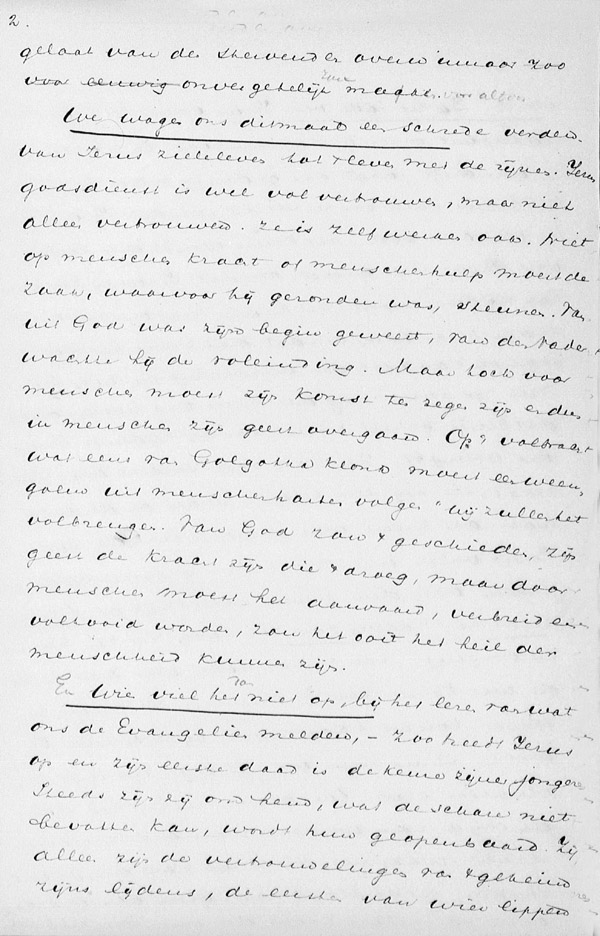 2.
gelaat van den stervende overwinnaar zoo
voor eeuwig onvergetelijk zou maakte. voor altoos
We wagen ons ditmaal een schrede verder.
van Jezus zieleleven tot 't leven met de zijnen. Jezus
godsdienst is wel vol vertrouwen, maar niet
alleen vertrouwen. Ze is zelf werken ook. Niet
op menschen kracht of menschenhulp moest de
zaak, waarvoor hij gezonden was, steunen. Van
uit God was zijn begin geweest, van den Vader
wachtte hij de voleinding. Maar toch voor
menschen moest zijn komst ten zegen zijn en dus
in menschen zijn geest overgaan. Op 't volbracht
wat eens van Golgotha klonk moest een weer
galm uit menschenharten volgen "wij zullen het
volbrengen. Van God zou 't geschieden, zijn
geest de kracht zijn die 't droeg, maar door
menschen moest het aanvaard, verbreid en
voltooid worden, zou het ooit het heil der
menschheid kunnen zijn.
En wie viel het dan niet op, bij het lezen van wat
ons de Evangeliën melden, – zoo treedt Jezus
op en zijn eerste daad is de keuze zijner jongeren
Steeds zijn zij om hem, wat de schare niet
bevatten kan, wordt hun geopenbaard. Zij
allen zijn de vertrouwelingen van 't geheim
zijns lijdens, de eersten van wier lippen